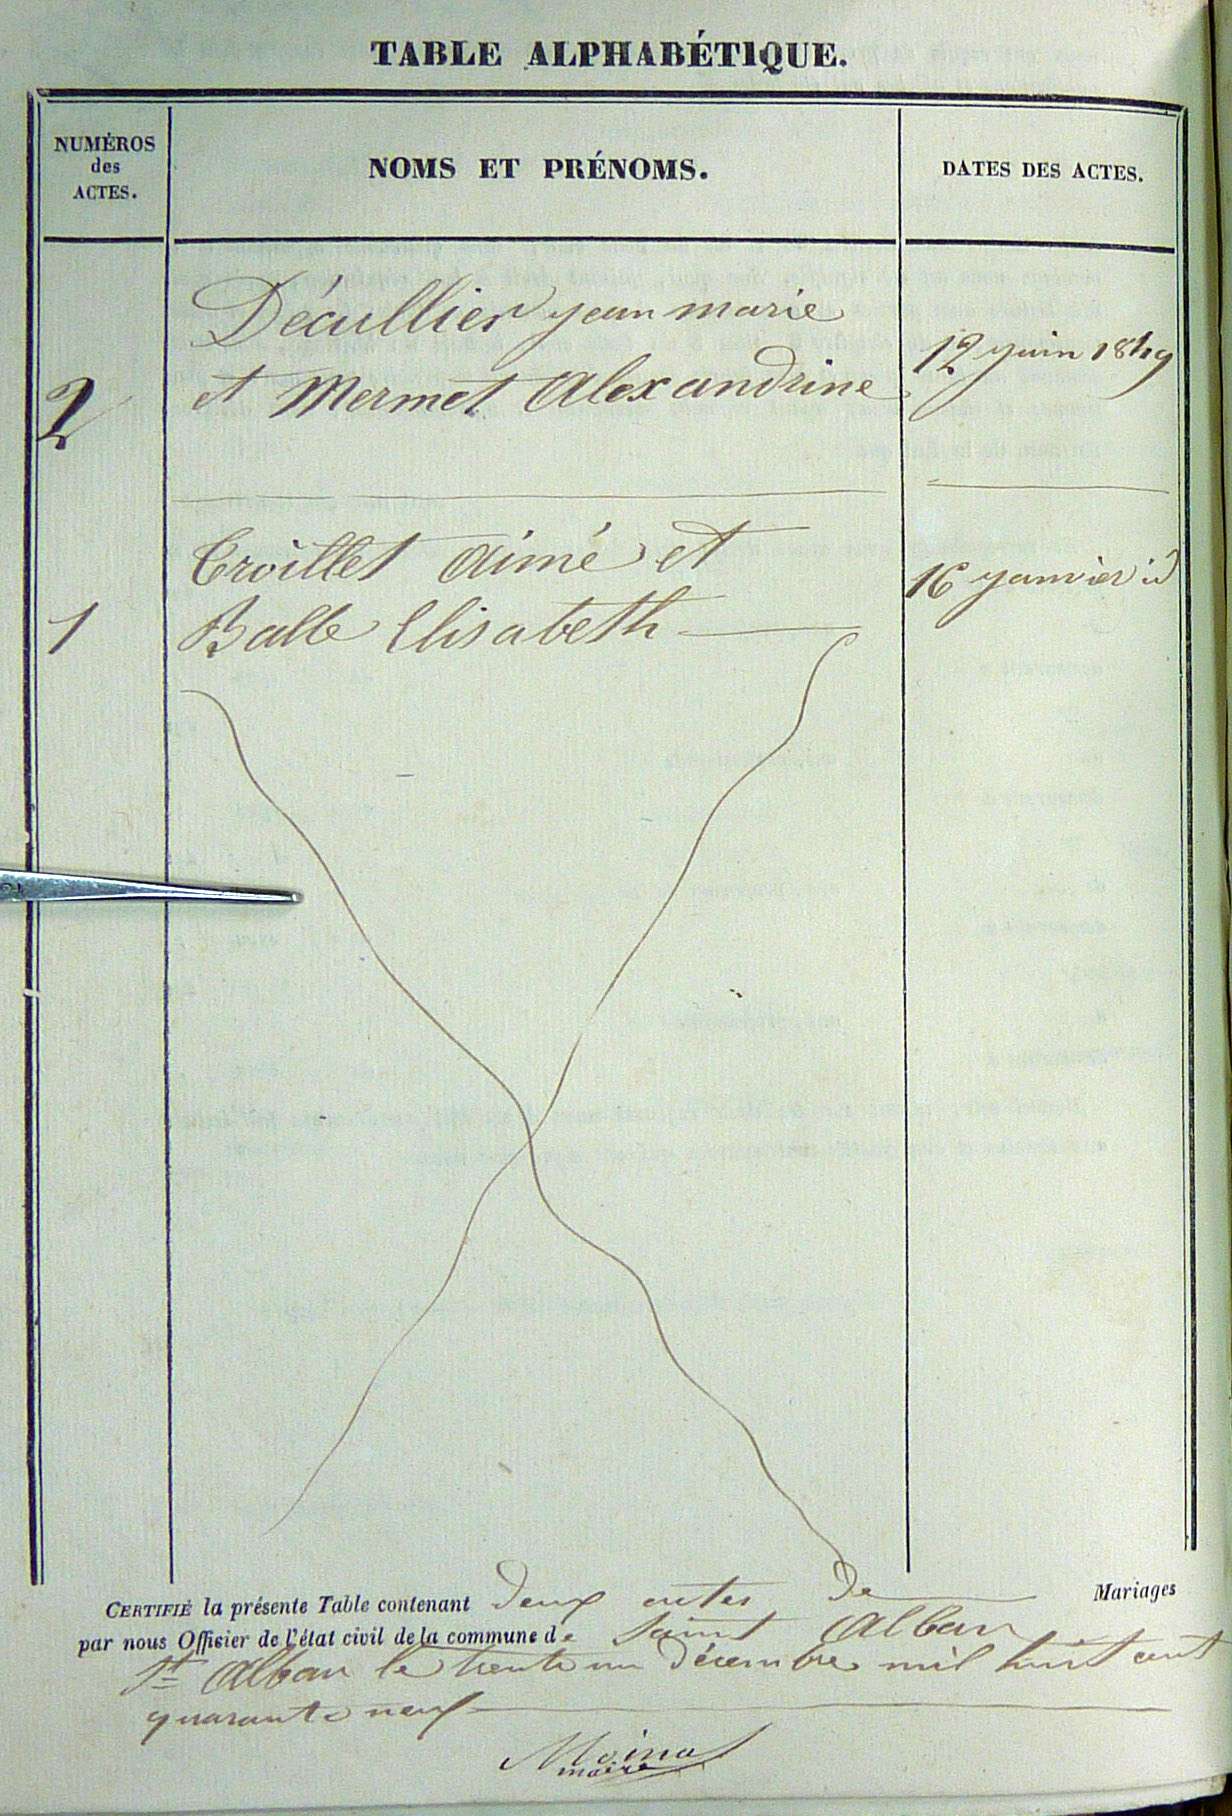 TABLE ALPHABÉTIQUE.
NUMÉROS
des
ACTES.
NOMS ET PRÉNOMS.
DATES DES ACTES.
Décullier jean marie
12 juin 1849
2
et Mermet Alexandrine
Troillet Aimé et
16 janvier id
1
Balle Elisabeth
CERTIFIÉ la présente Table contenant deux actes de Mariages
par nous Officier de l'état civil de la commune de Saint Alban
St Alban le trente un décembre mil huit cent
quarante neuf
Moina
maire